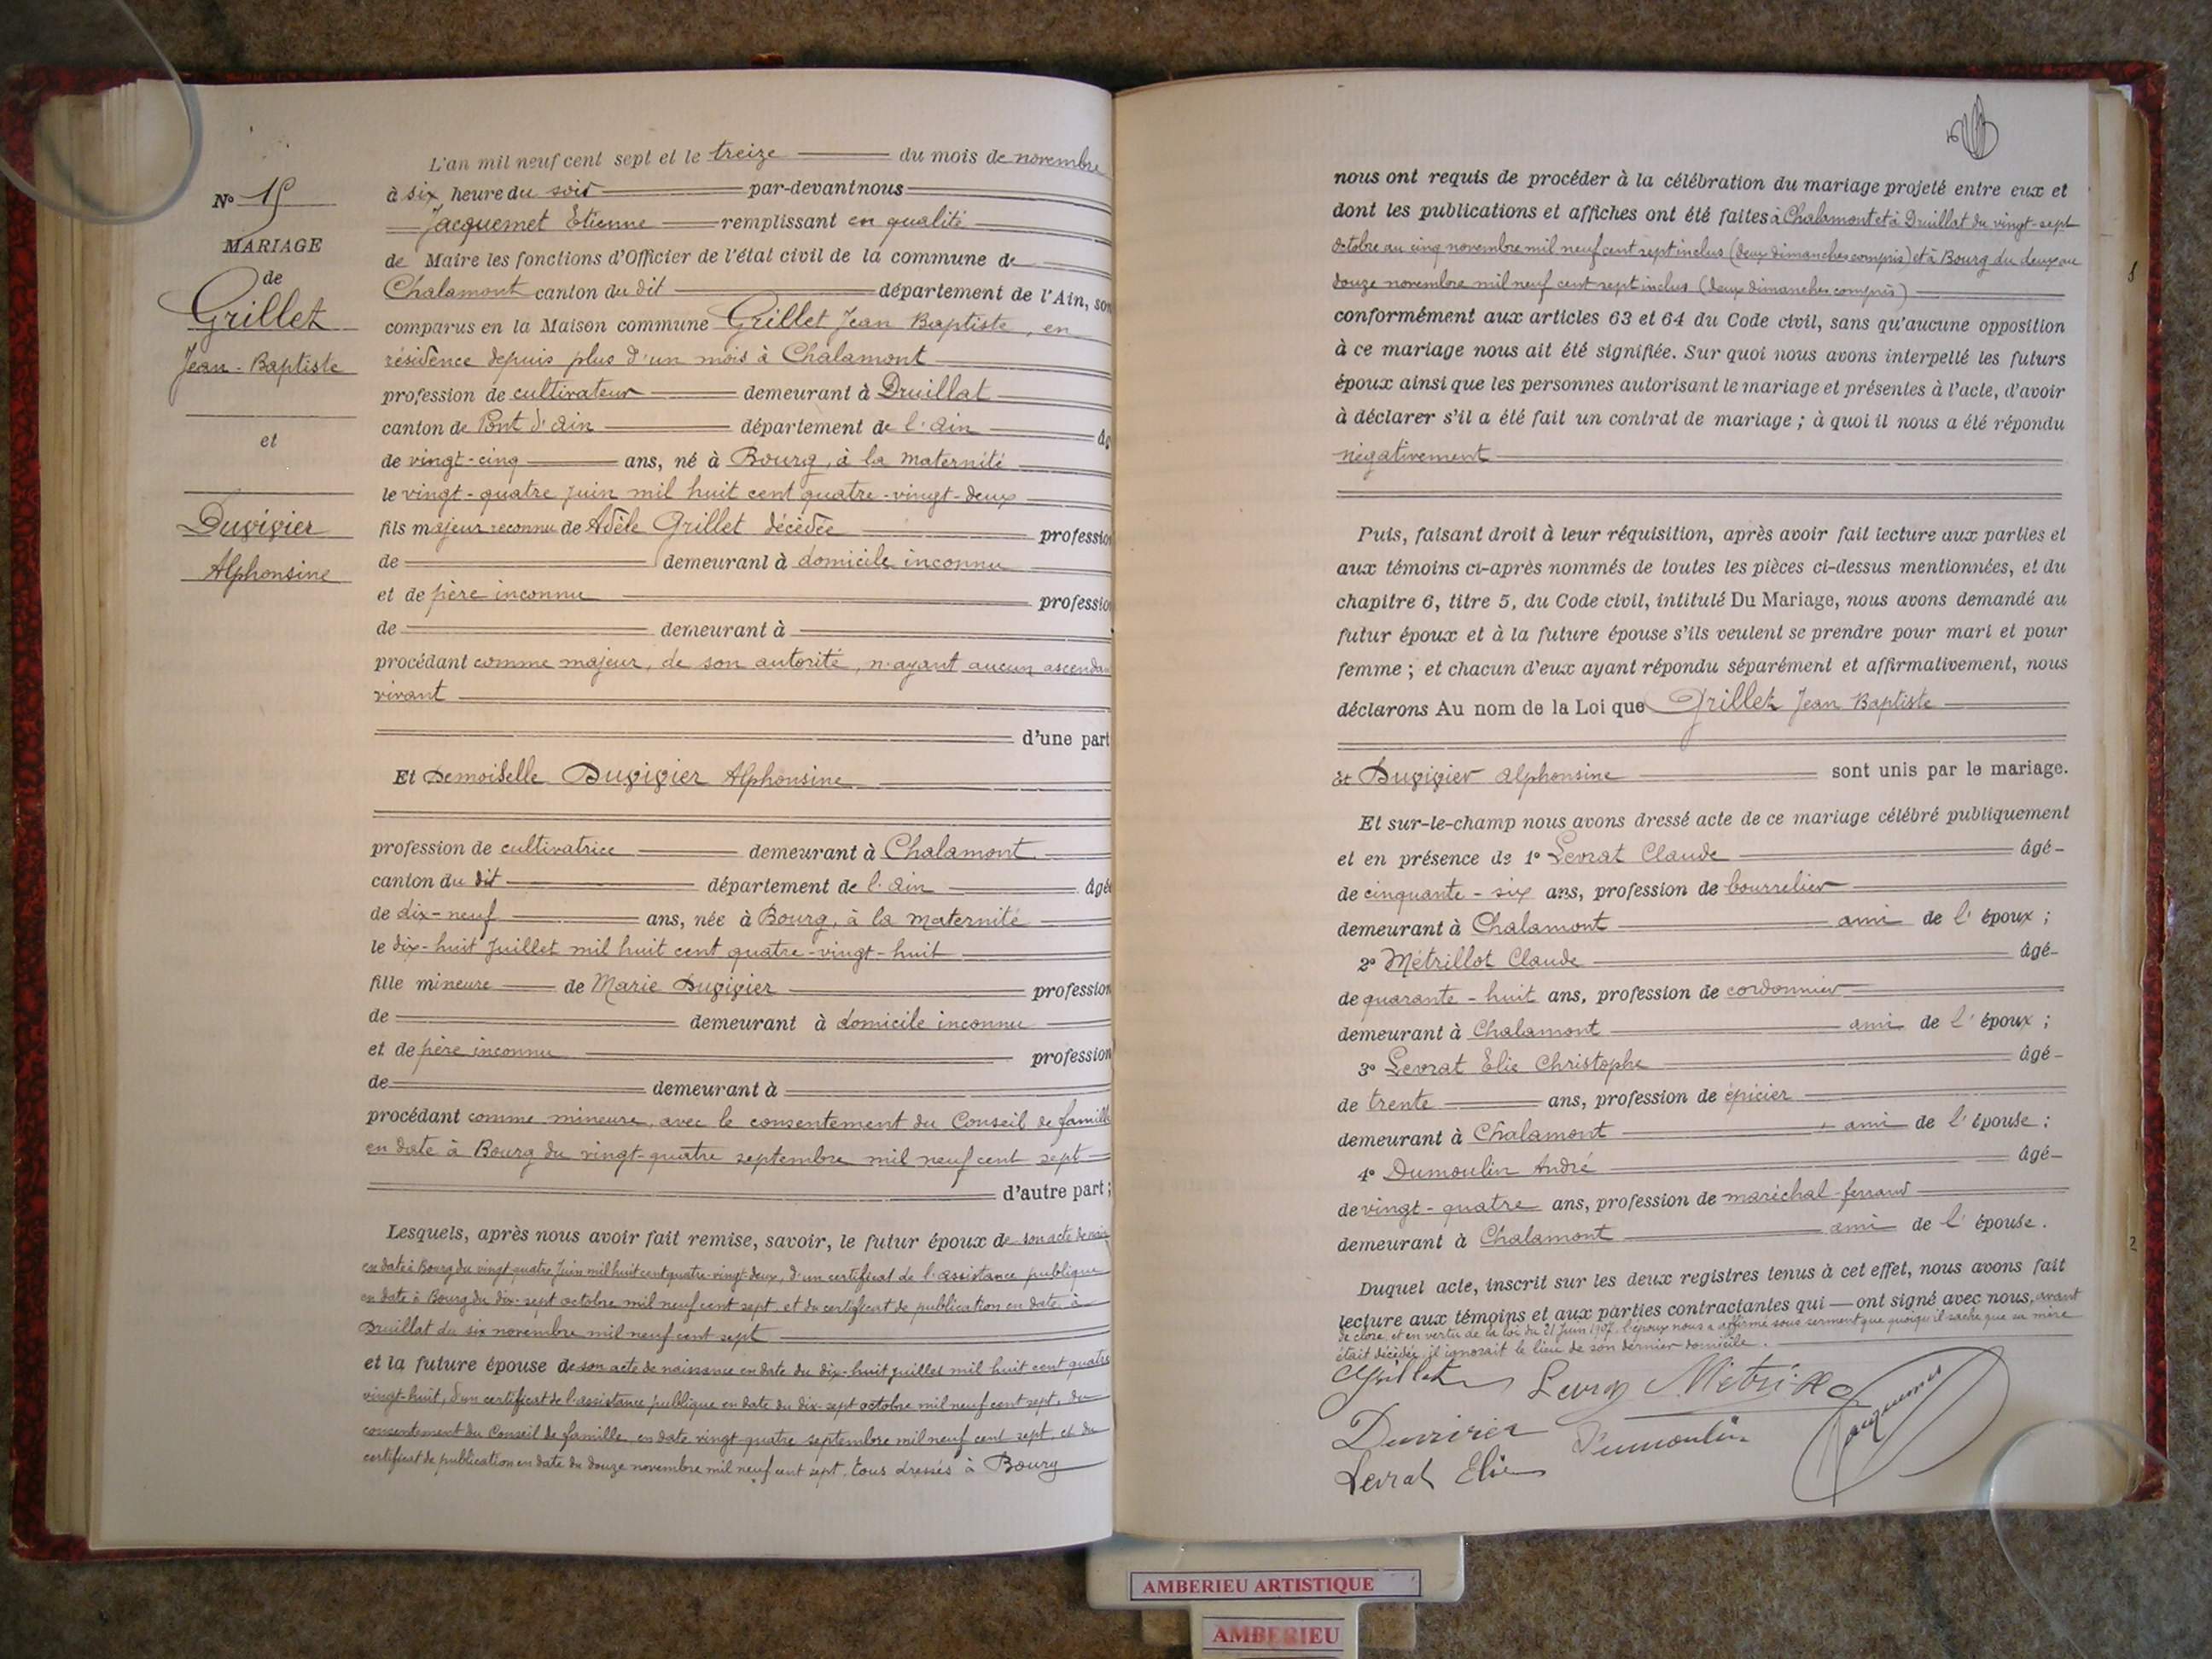 L'an mil neuf cent sept et le treize du mois de novembre
à six heure du soir par-devant nous
Jacquemet Etienne remplissant en qualité
de Maire les fonctions d'Officier de l'état civil de la commune de
Chalamont canton du dit département de l'Ain, son
comparus en la Maison commune Grillet Jean Baptiste, en
résidence depuis plus d'un mois à Chalamont
profession de cultivateur demeurant à Druillat
canton de Pont d'Ain département de l'Ain
de vingt-cinq ans, né à Bourg, à la maternité
le vingt-quatre juin mil huit cent quatre-vingt-deux
fils majeur reconnu de Adèle Grillet décédée professio
de demeurant à domicile inconnu
et de père inconnu professio
de demeurant à
procédant comme majeur, de son autorité, n'ayant aucun ascendan
vivant
d'une part
Et Demoiselle Duvivier Alphonsine
profession de cultivatrice demeurant à Chalamont
canton du dit département de l'Ain âgé
de dix-neuf ans, née à Bourg, à la maternité
le dix-huit Juillet mil huit cent quatre-vingt-huit
fille mineure de Marie Duvivier profession
de demeurant à domicile inconnu
et de père inconnu profession
de demeurant à
procédant comme mineure, avec le consentement du Conseil de famille
en date à Bourg du vingt-quatre septembre mil neuf cent sept
d'autre part;
Lesquels, après nous avoir fait remise, savoir, le futur époux de son acte de nais
en date à Bourg du vingt quatre Juin mil huit cent quatre-vingt-deux, d'un certificat de l'assistance publique
en date à Bourg du dix-sept octobre mil neuf cent sept, et du certificat de publication en date à
Druillat du six novembre mil neuf cent sept
et la future épouse de son acte de naissance en date du dix-huit juillet mil huit cent quatre
vingt-huit, d'un certificat de l'assistance publique en date du dix-sept octobre mil neuf cent sept, du
consentement du Conseil de famille en date vingt-quatre septembre mil neuf cent sept, et du
certificat de publication en date du douze novembre mil neuf cent sept. tous dressés à Bourg
N° 15
MARIAGE
de
Grillet
Jean-Baptiste
et
Duvivier
Alphonsine
nous ont requis de procéder à la célébration du mariage projeté entre eux et
dont les publications et affiches ont été faites à Chalamont et à Druillat du vingt-sept
octobre au cinq novembre mil neuf cent sept inclus (deux dimanches compris) et à Bourg du deux au
douze novembre mil neuf cent sept inclus (deux dimanches compris)
conformément aux articles 63 et 64 du Code civil, sans qu'aucune opposition
à ce mariage nous ait été signifiée. Sur quoi nous avons interpellé les futurs
époux ainsi que les personnes autorisant le mariage et présentes à l'acte, d'avoir
à déclarer s'il a été fait un contrat de mariage ; à quoi il nous a été répondu
négativement
Puis, faisant droit à leur réquisition, après avoir fait lecture aux parties et
aux témoins ci-après nommés de toutes les pièces ci-dessus mentionnées, et du
chapitre 6, titre 5, du Code civil, intitulé Du Mariage, nous avons demandé au
futur époux et à la future épouse s'ils veulent se prendre pour mari et pour
femme ; et chacun d'eux ayant répondu séparément et affirmativement, nous
déclarons Au nom de la Loi que Grillet Jean Baptiste
et Duvivier Alphonsine sont unis par le mariage.
Et sur-le-champ nous avons dressé acte de ce mariage célébré publiquement
et en présence de 1° Levrat Claude âgé
de cinquante-six ans, profession de bourrelier
demeurant à Chalamont ami de l'époux ;
2° Métrillot Claude âgé
de quarante-huit ans, profession de cordonnier
demeurant à Chalamont ami de l'époux ;
3° Levrat Elie Christophe âgé
de trente ans, profession de épicier
demeurant à Chalamont ami de l'épouse ;
4° Dumoulin André âgé
de vingt-quatre ans, profession de maréchal-ferrand
demeurant à Chalamont ami de l'épouse.
Duquel acte, inscrit sur les deux registres tenus à cet effet, nous avons fait
lecture aux témoins et aux parties contractantes qui ont signé avec nous, avant
de clore, et en vertu de la loi du 21 Juin 1907, l'époux nous a affirmé sous serment que quoiqu'il sache que sa mère
était décédée, il ignorait le lieu de son dernier domicile.
Grillet Levrat
Duvivier Dumoulin Jacquemet
Levrat Elie
AMBERIEU ARTISTIQUE
AMBERIEU